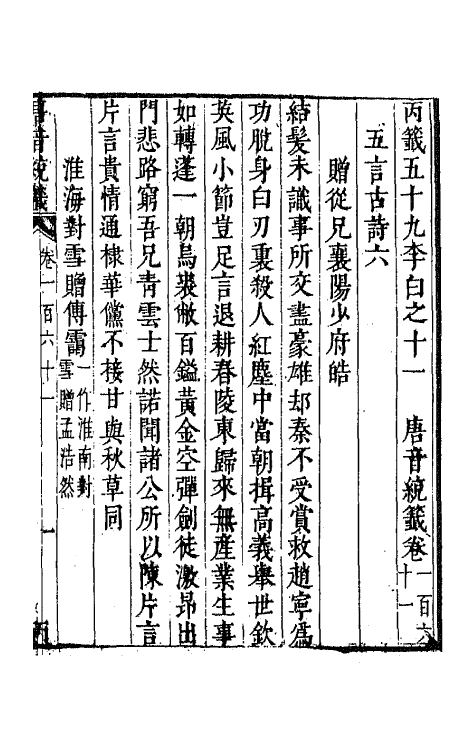 丙籤五十九李白之十一　唐音統籤卷一百六十一
五言古詩六
贈從兄襄陽少府皓
結髮未識事所交盡豪雄却秦不受賞救趙寧爲
功脫身白刃裏殺人紅塵中當朝揖高義舉世欽
英風小節豈足言退耕舂陵東歸來無產業生事
如轉蓬一朝烏裘敝百鎰黃金空彈劍徒激昂出
門悲路窮吾兄靑雲士然諾聞諸公所以陳片言
片言貴情通棣華儻不接甘與秋草同
淮海對雪贈傅靄一作淮南對雪贈孟浩然
唐音統籤　卷一百六十一　一